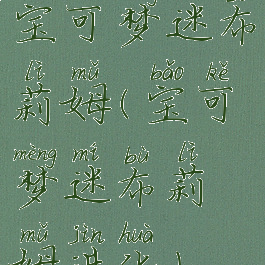 宝可梦迷布
lì mǔ bǎo kě
莉姆(宝可
mèng mí bù lì
梦迷布莉
mǔ jìn huà
姆进化)